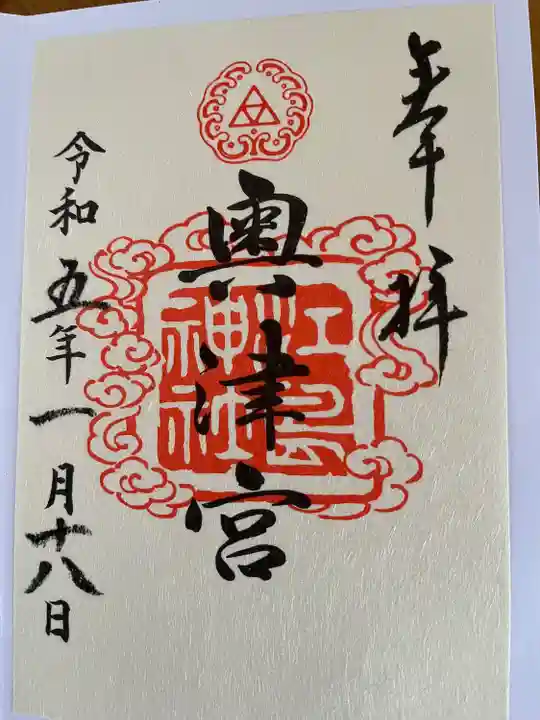 奉拝
奥津宮
江島神社
令和五年一月十八日